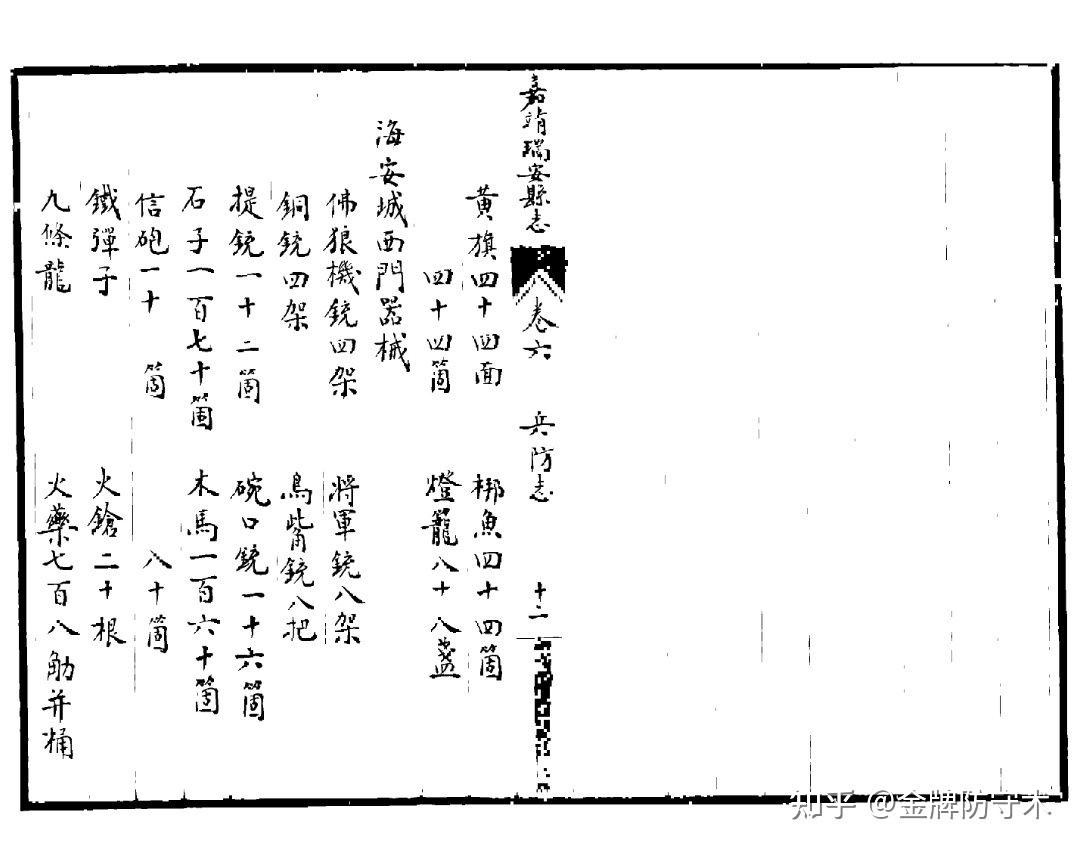 嘉靖瑞安縣志 卷六 兵防志 十二
黃旗四十四面 梆魚四十四箇
四十四箇 燈籠八十八盞
海安城西門器械
佛狼機銃四架 將軍銃八架
銅銃四架 鳥嘴銃八把
提銃一十二箇 碗口銃一十六箇
石子一百七十箇 木馬一百六十箇
信砲一十 箇 八十箇
鐵彈子 火鎗二十根
九條龍 火藥七百八觔并桶
知乎 @金牌防守木